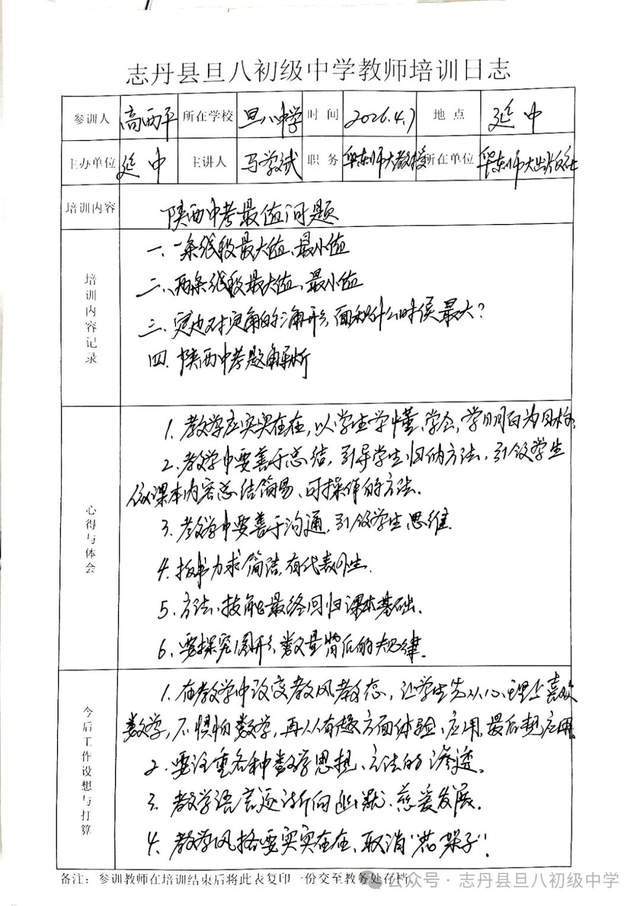 志丹县旦八初级中学教师培训日志
参训人 高西平 所在学校 旦八中学 时间 2026.4.7 地点 延中
主办单位 延中 主讲人 马学斌 职务 华东师大教授 所在单位 华东师大出版社
培训内容 陕西中考最值问题
培训内容记录
一.一条线段最大值、最小值
二、两条线段最大值、最小值
三.定边对定角的三角形,面积什么时候最大?
四.陕西中考题解析
心得与体会
1.教学应实实在在,以学生学懂、学会、学明白为目标.
2.教学中要善于总结,引导学生归纳方法,引领学生
做课本内容总结简易、可操作的方法.
3.教学中要善于沟通,引领学生思维.
4.板书力求简洁,有代表性.
5.方法、技能最终回归课本基础.
6.要探究图形、数量背后的规律.
今后工作设想与打算
1.在教学中改变教风教态,让学生先从心理上喜欢
数学,不惧怕数学,再从有趣方面体验、应用,最后想应用.
2.要注重各种数学思想、方法的渗透.
3.教学语言逐渐向幽默、慈爱发展.
4.教学风格要实实在在,取消"花架子".
备注:参训教师在培训结束后将此表复印一份交至教务处存档
公众号·志丹县旦八初级中学